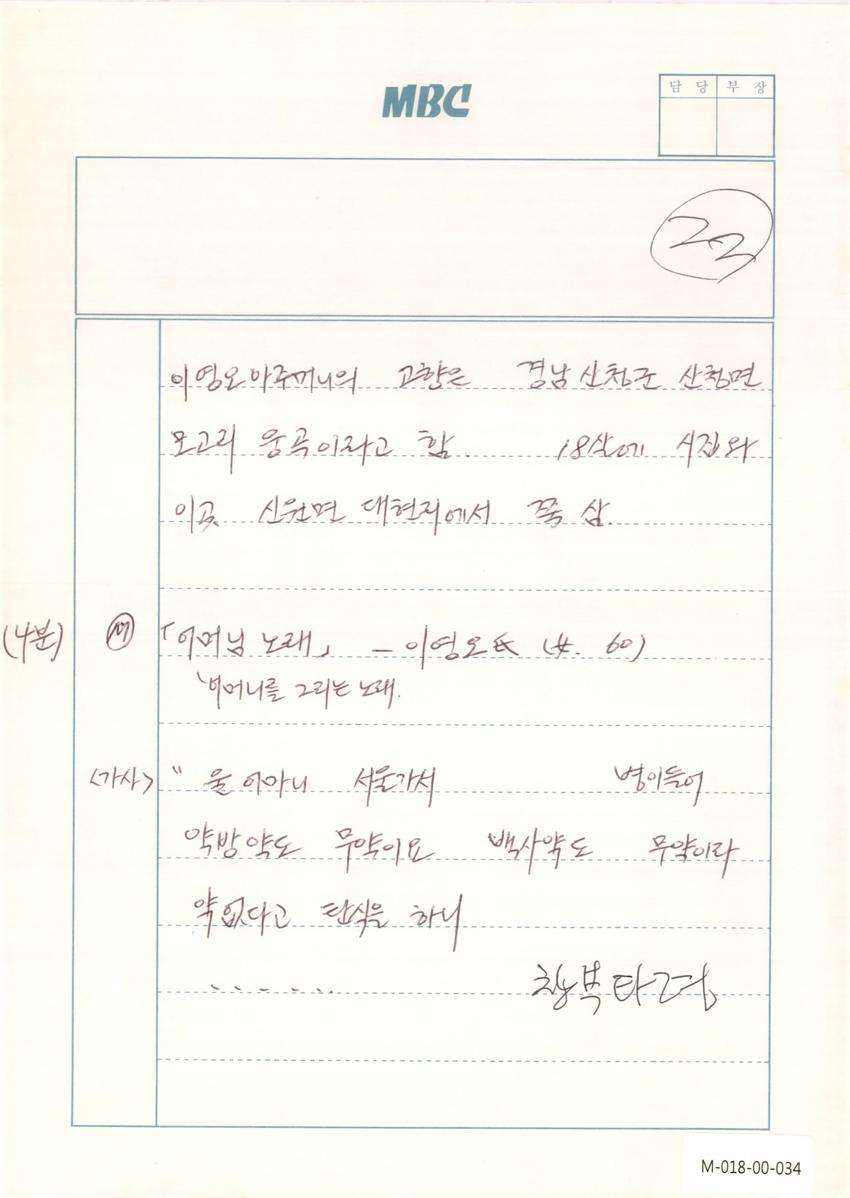 MBC
담 당 부 장
22
이영오 아주머니의 고향은 경남 산청군 산청면
모고리 웅곡이라고 함. 18살에 시집와
이곳 신원면 대현리에서 쭉 삼.
(4분) 「어머님 노래」 – 이영오 氏 (女. 60)
어머니를 그리는 노래.
<가사> " 울 어마니 서울가서 병이들어
약방약도 무약이요 백사약도 무약이라
약없다고 탄식을 하니
......
창부타령
M-018-00-034